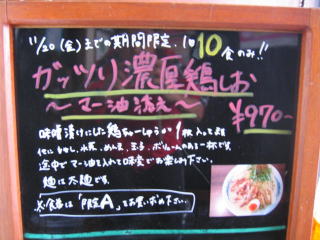 11/20(金)までの期間限定、1日10食のみ!!
ガッツリ濃厚鶏しお
～マー油添え～
¥970-
味噌漬けにした鶏ちゃーしゅうが1枚入って
水菜、めんま、玉子、ボリューム一杯です。
途中でマー油を入れて味変でお楽しみ下さい。
麺は太麺です。
※食券は「限定A」をお買い求め下さい。